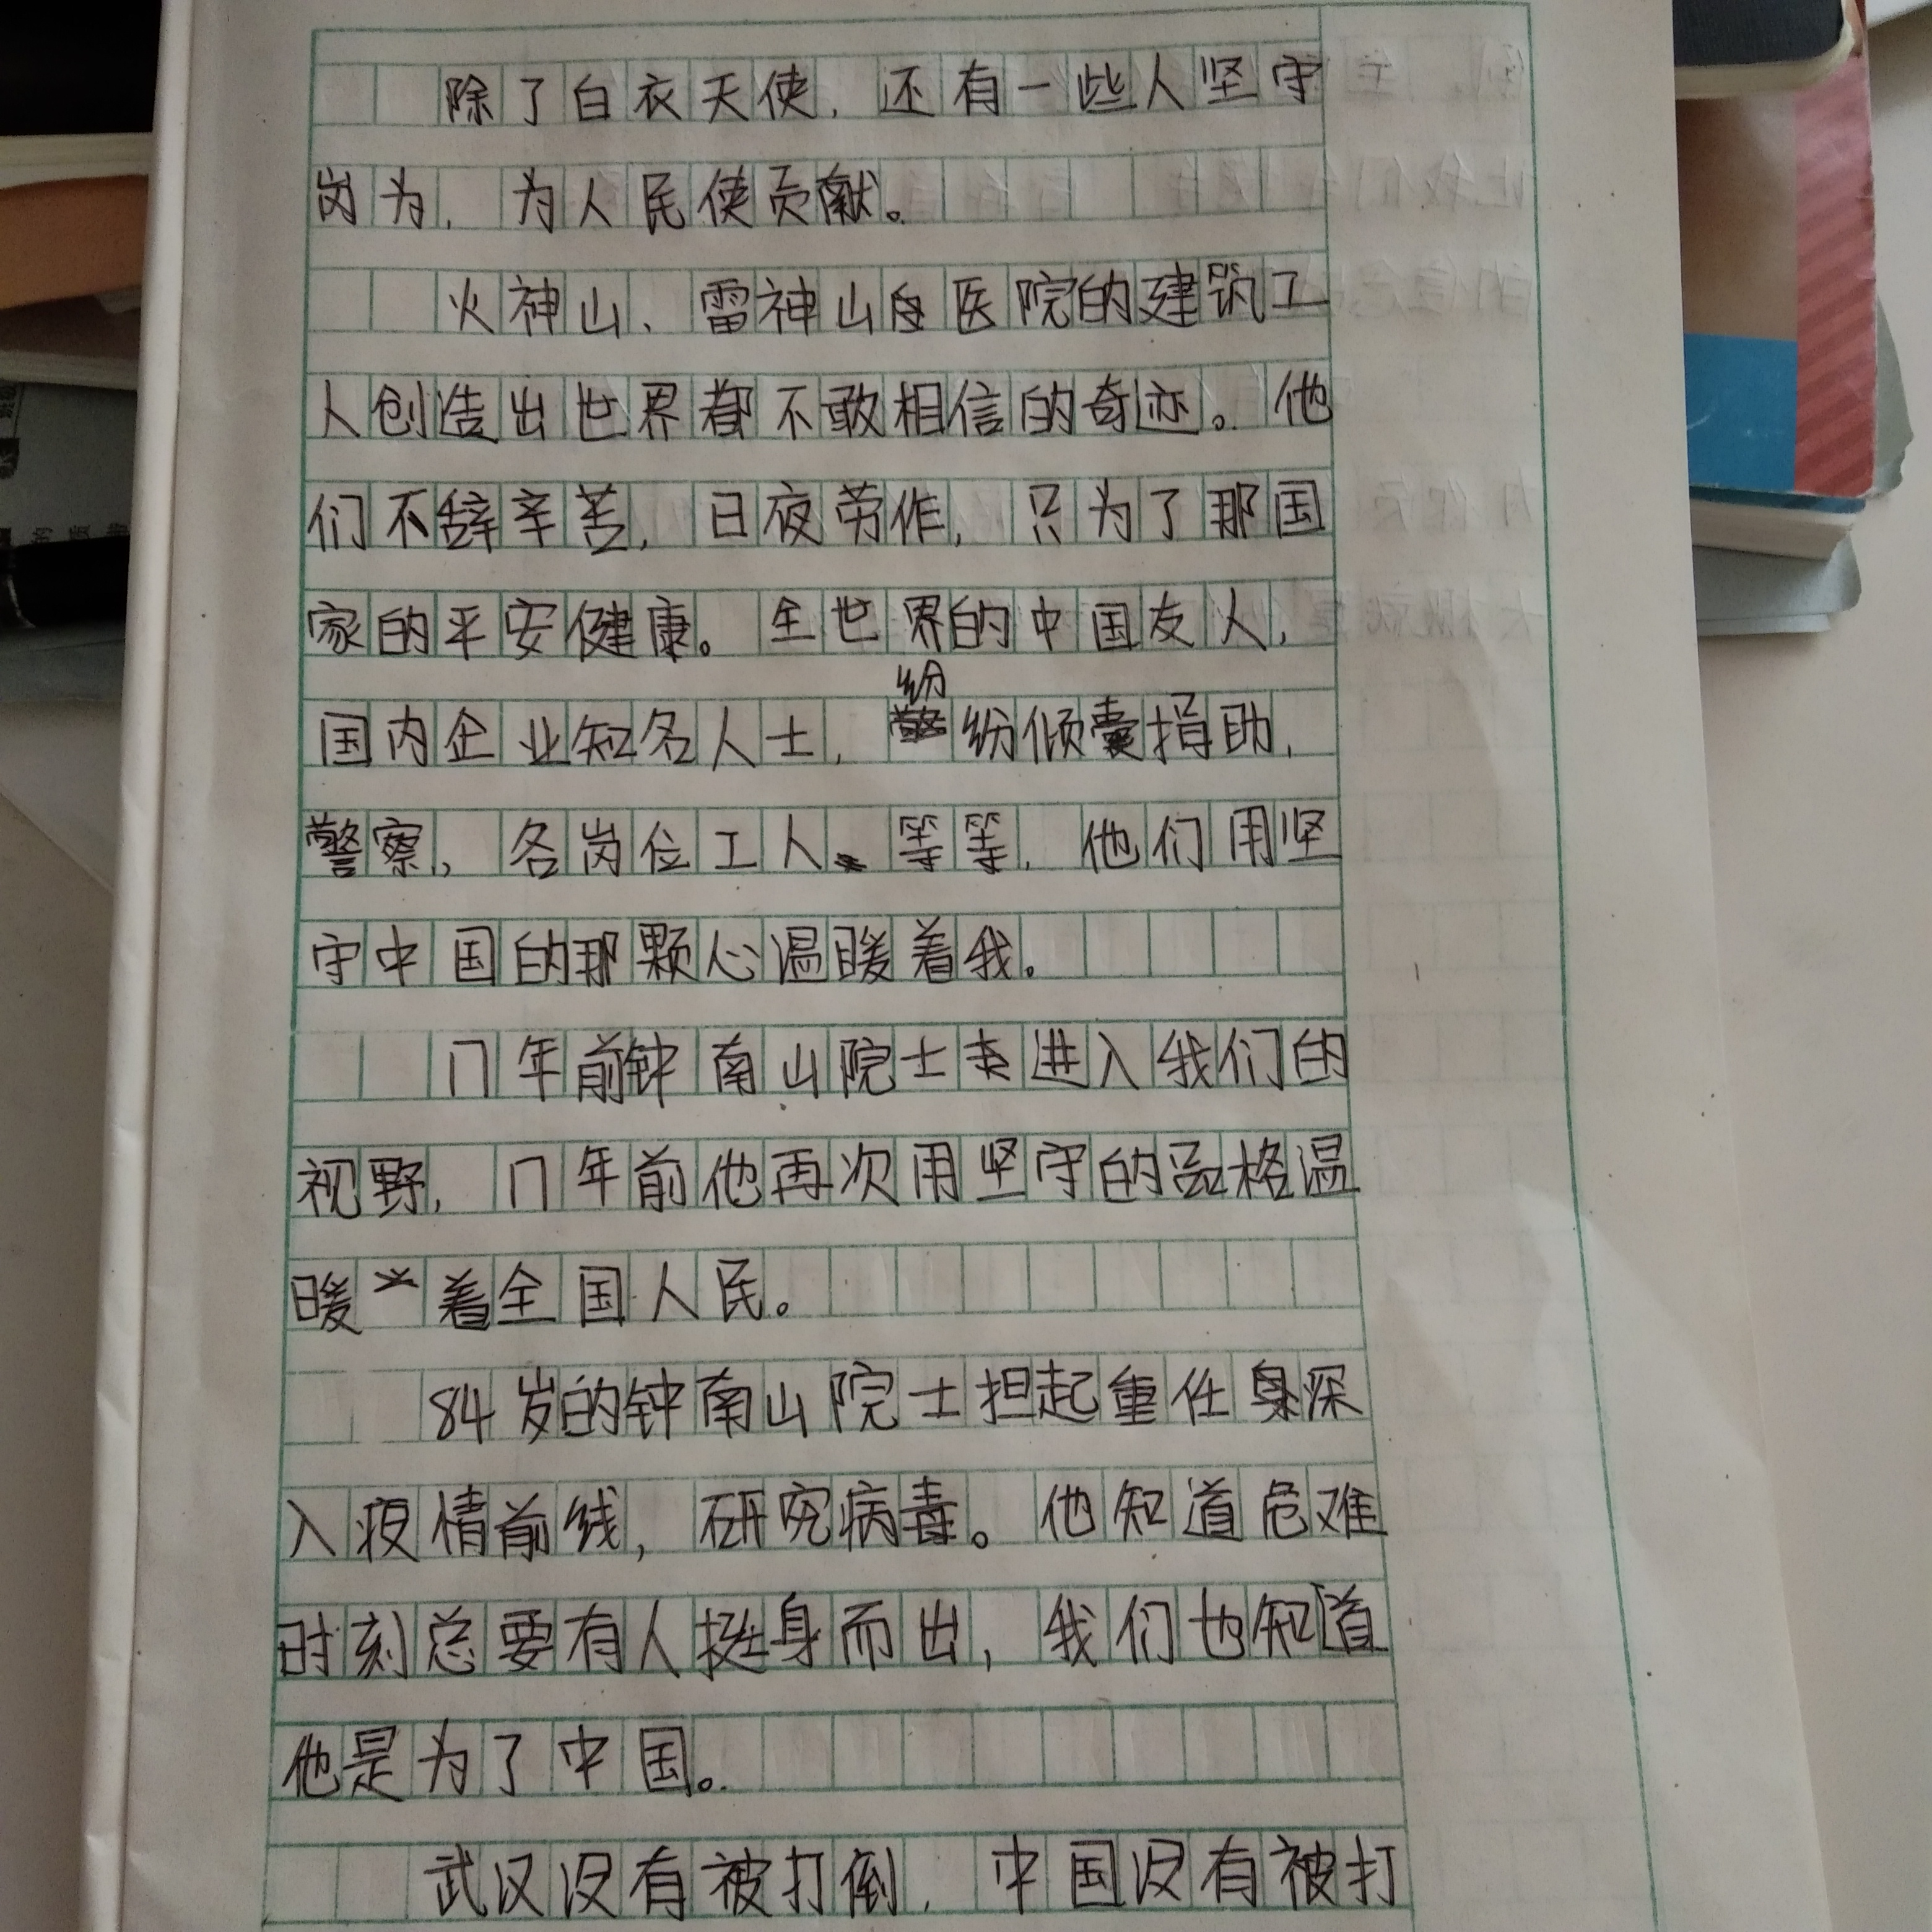 除了白衣天使，还有一些人坚守
岗为，为人民使贡献。
火神山、雷神山医院的建筑工
人创造出世界都不敢相信的奇迹。他
们不辞辛苦，日夜劳作，只为了那国
家的平安健康。全世界的中国友人，
国内企业知名人士，纷纷倾囊捐助，
警察，各岗位工人等等，他们用坚
守中国的那颗心温暖着我。
17年前钟南山院士走进入我们的
视野，17年前他再次用坚守的品格温
暖着全国人民。
84岁的钟南山院士担起重任身深
入疫情前线，研究病毒。他知道危难
时刻总要有人挺身而出，我们也知道
他是为了中国。
武汉没有被打倒，中国没有被打